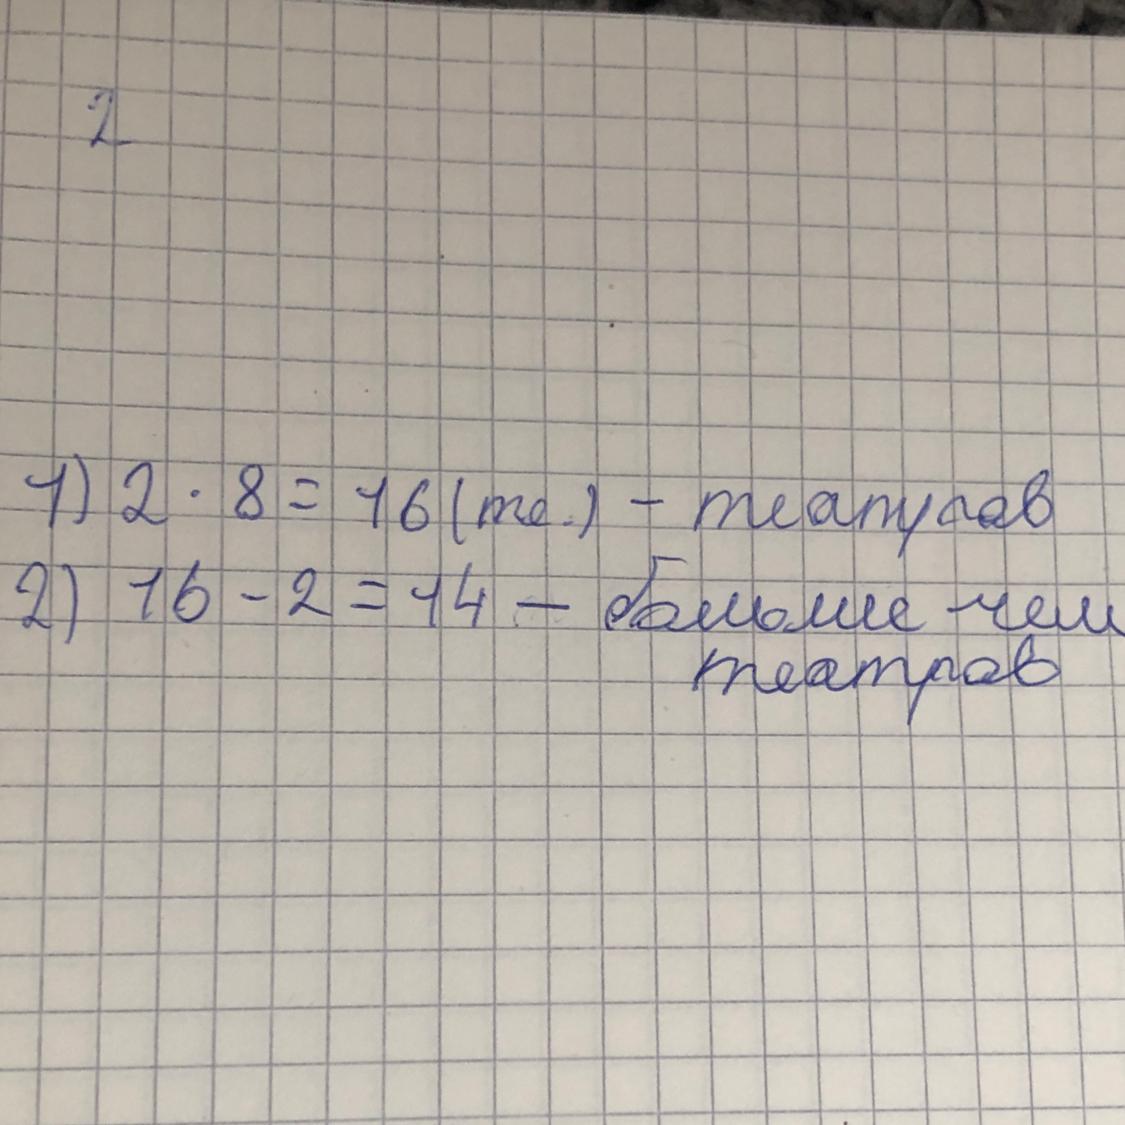 2
1) 2 · 8 = 16 (те.) - театров
2) 16 - 2 = 14 - больше чем
театров